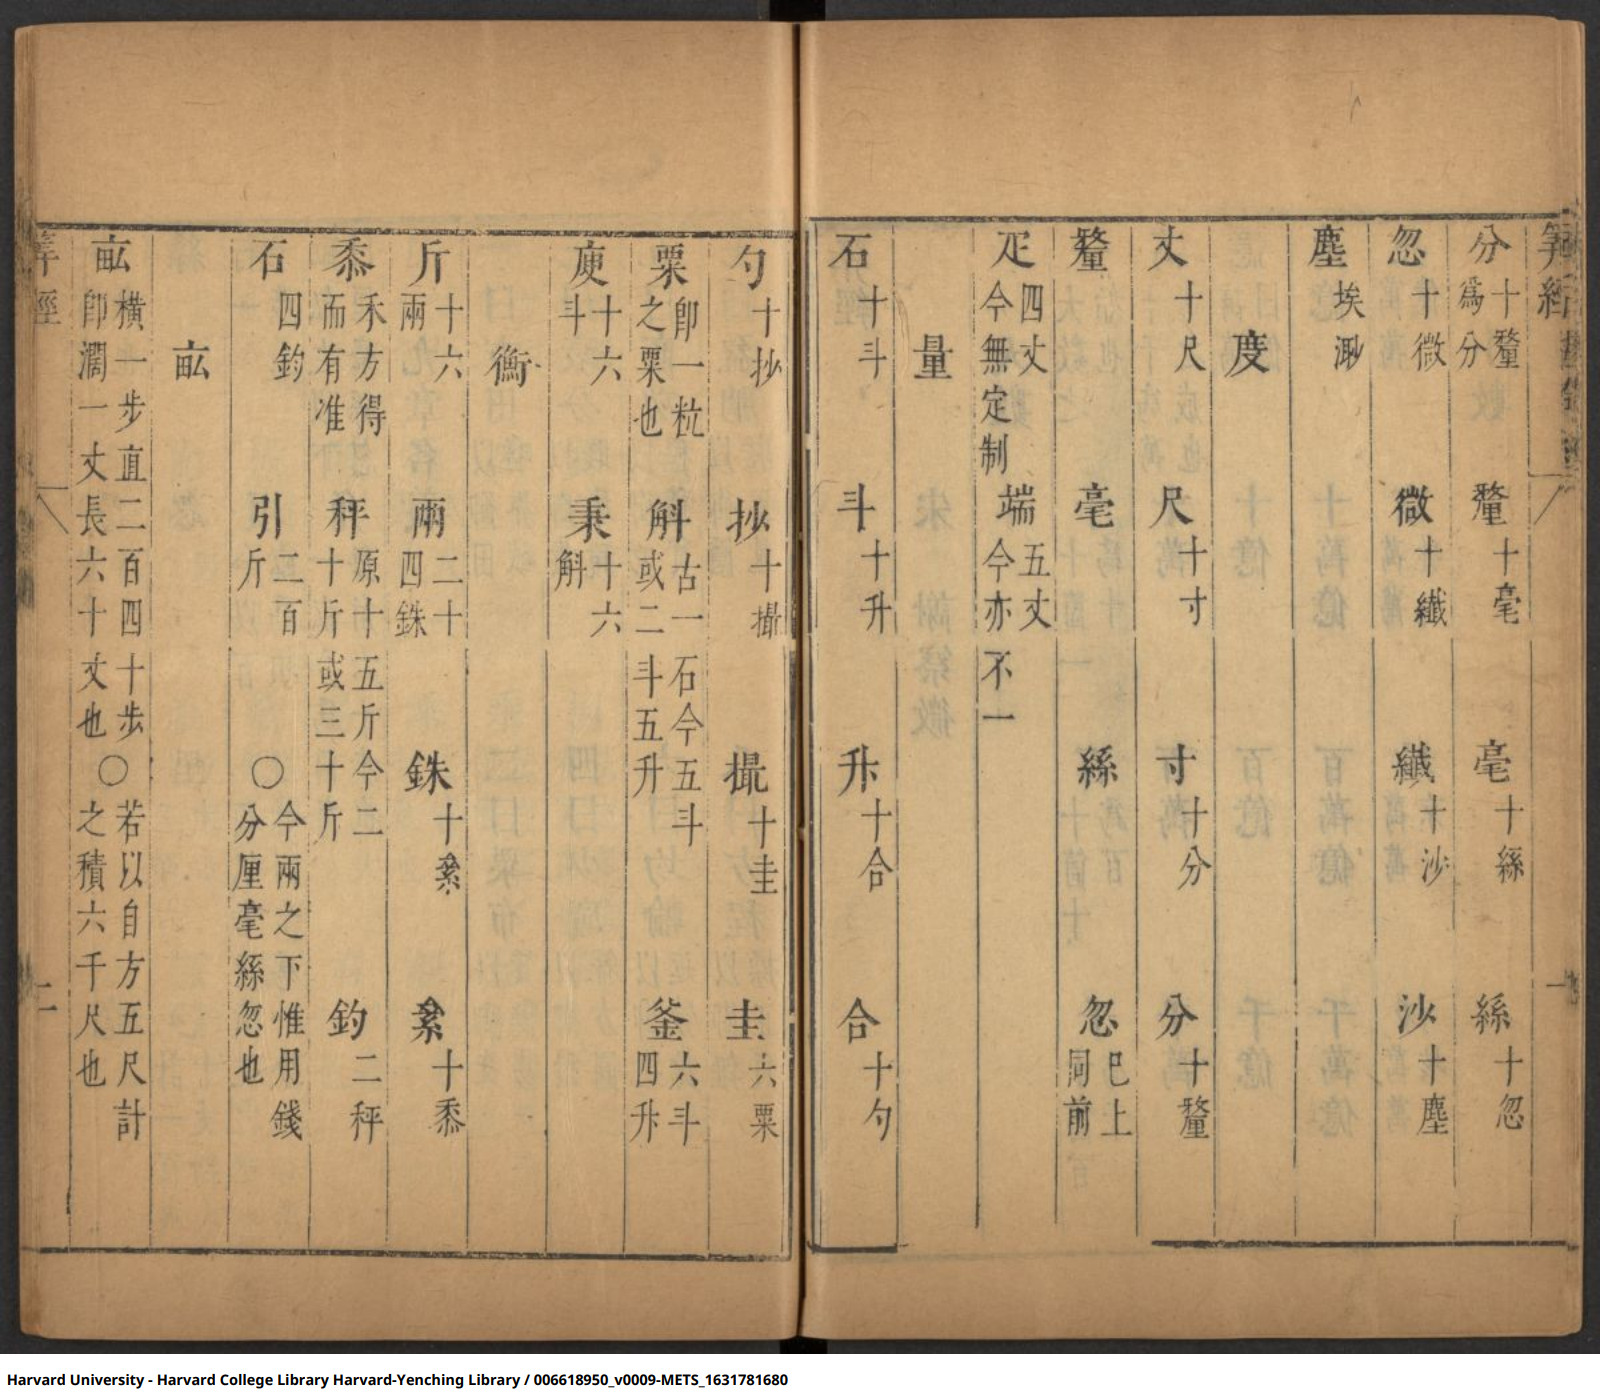 筭經
分十釐爲分 釐十毫 毫十絲 絲十忽
忽十微 微十纖 纖十沙 沙十塵
塵埃渺
度
丈十尺 尺十寸 寸十分 分十釐
釐 毫 絲 忽已上同前
疋四丈今無定制 端五丈今亦不一
量
石十斗 斗十升 升十合 合十勺
勺十抄 抄十撮 撮十圭 圭六粟
粟卽一粒之粟也 斛古一石今五斗或二斗五升 釜六斗四升
庾十六斗 秉十六斛
衡
斤十六兩 兩二十四銖 銖十絫 絫十黍
黍禾方得而有准 秤原十五斤今二十斤或三十斤 鈞二秤
石四鈞 引二百斤 ○今兩之下惟用錢分厘毫絲忽也
畝
畝橫一步直二百四十步卽濶一丈長六十丈也○若以自方五尺計之積六千尺也
筭經 二
Harvard University - Harvard College Library Harvard-Yenching Library / 006618950_v0009-METS_1631781680